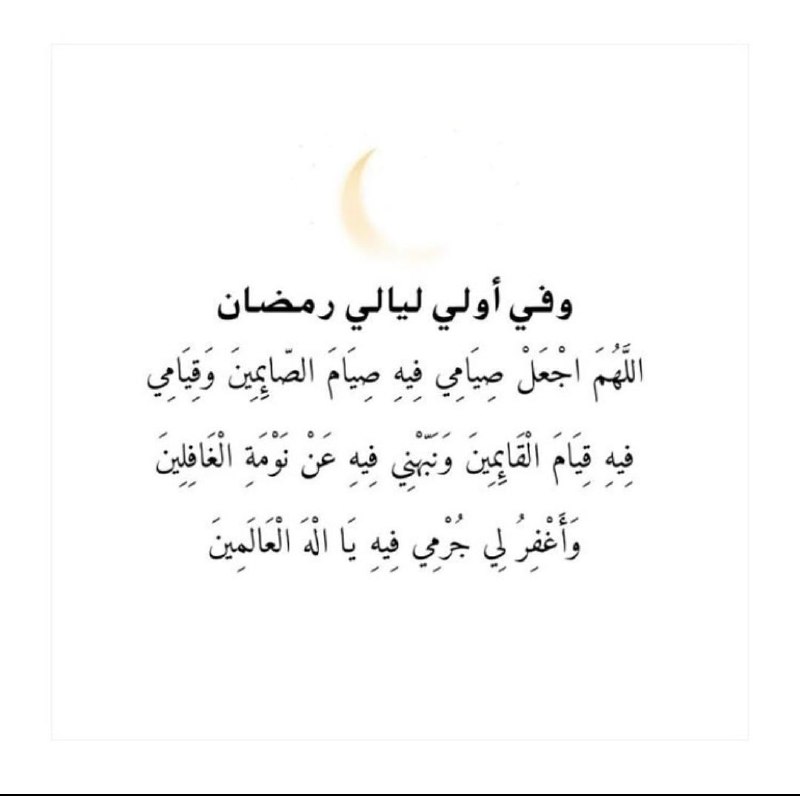 وفي أولي ليالي رمضان
اللَّهُمَ اجْعَلْ صِيَامِي فِيهِ صِيَامَ الصّائِمِينَ وَقِيَامِي
فِيهِ قِيَامَ الْقَائِمِينَ وَنَبّهْنِي فِيهِ عَنْ نَوْمَةِ الْغَافِلِينَ
وَأَغْفِرُ لِي جُرْمِي فِيهِ يَا الْهَ الْعَالَمِينَ